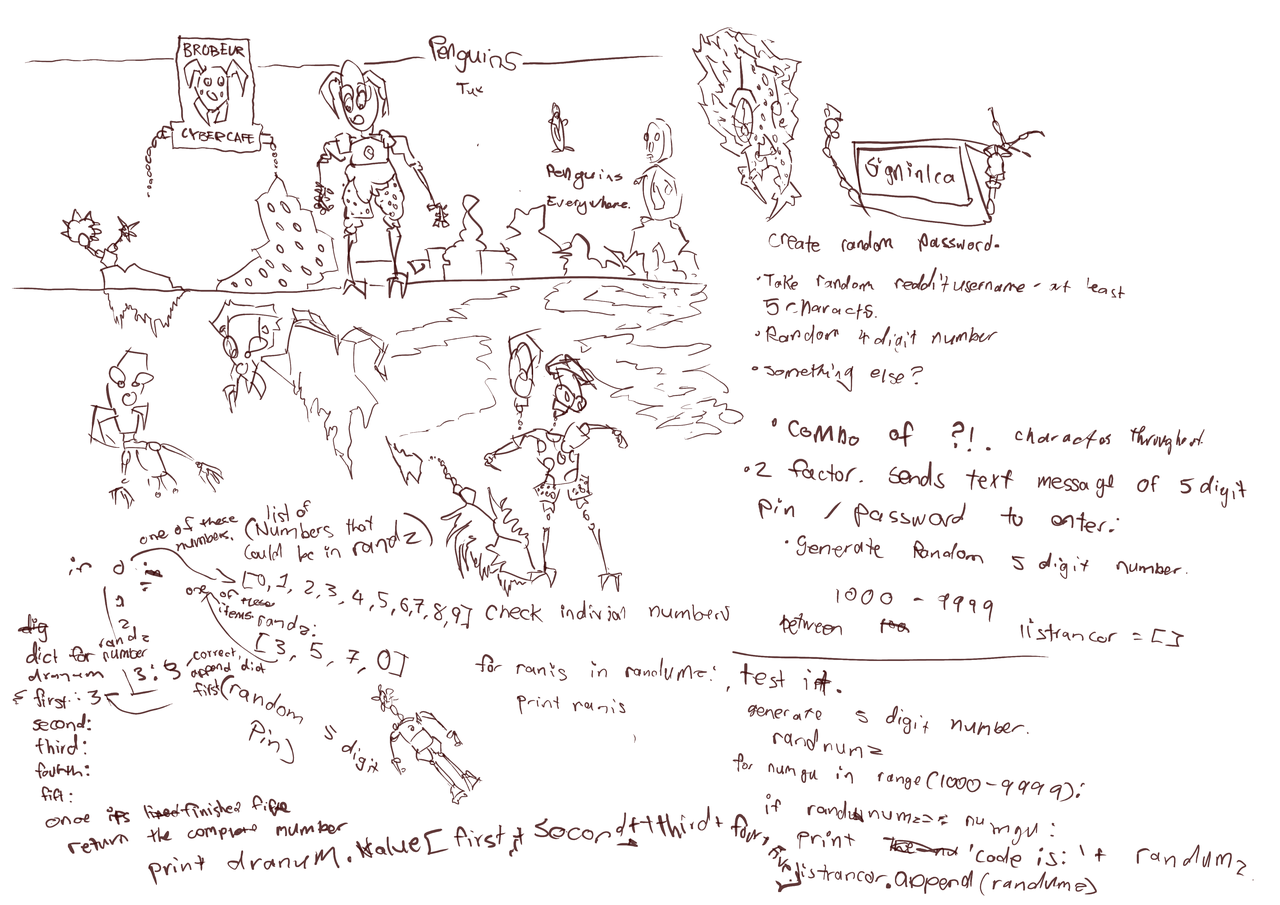 BROBEUR
CYBERCAFE
Penguins
Tux
Penguins
Everywhere.
Signinlca
create random password.
• Take random reddit username - at least
5 characts.
• Random 4 digit number
• something else?
• combo of ?!. charactos throughout
• 2 factor. sends text message of 5 digit
pin / password to enter:
• generate Random 5 digit number.
1000 - 9999
between
listrancor = []
test it.
generate 5 digit number.
randnumz
for numgu in range(1000-9999):
if randunumz== numgu:
print 'code is:' + randumz
listrancor.append(randumz)
one of these
numbers.
list of
(Numbers that
could be in randz)
in 0:
1
2
[0, 1, 2, 3, 4, 5, 6, 7, 8, 9] check indivial numbers
one of these
items randz:
[3, 5, 7, 0]
for ranis in randumz:
print ranis
dig
dict for randz number
dranum
3: 3
correct,
append dict
first
(random
5 digit
Pin)
first: 3
second:
third:
fourth:
fift:
once its finished
return the complete number
print dranum.value[first + second + third + four